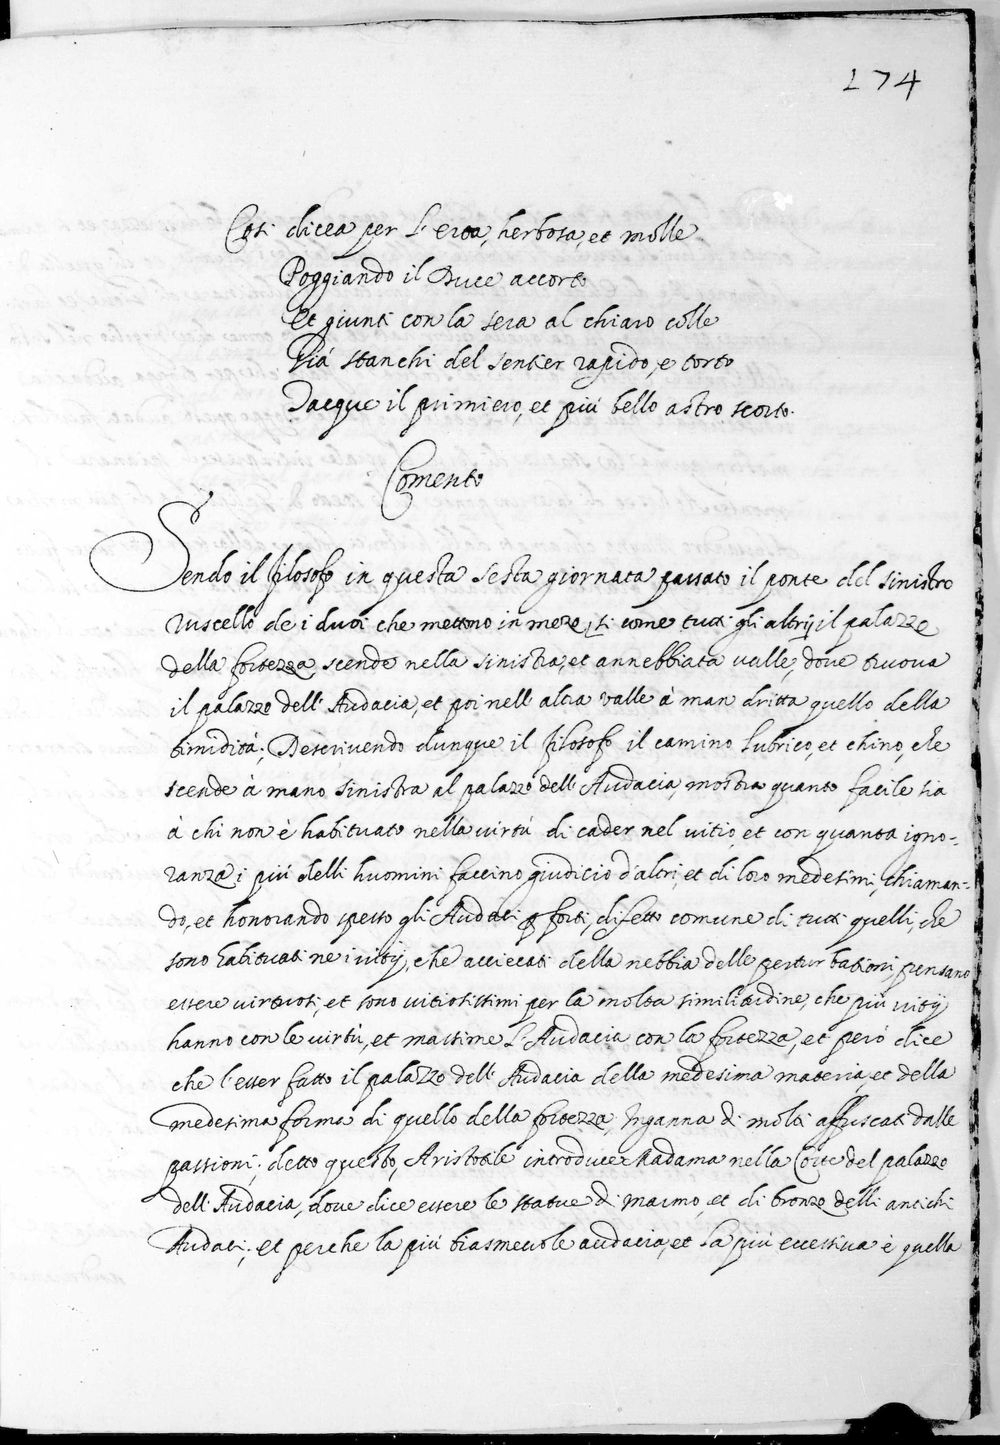 174
Cosi dicea per l'erta, herbosa, et molle
Poggiando il Duce accorto
Et giunti con la sera al chiaro colle
Già stanchi del sentier rapido, e torto
Dacque il primiero, et più bello astro scorto.
Comento
Sendo il filosofo in questa sesta giornata passato il ponte del sinistro
ruscello de i duoi che mettono in mezo, si come tutti gli altrij il palazzo
della fortezza scende nella sinistra, et annebbiata valle, dove truova
il palazzo dell'Audacia, et poi nell'altra valle à man dritta quello della
timidità; Descrivendo dunque il filosofo il camino lubrico, et chino, che
scende à mano sinistra al palazzo dell'Audacia, mostra quanto facile sia
à chi non è habituato nella virtù di cader nel vitio, et con quanta igno-
ranza i più delli huomini faccino giudicio d'altri, et di loro medesimi, chiaman-
do, et honorando spesso gli Audati p forti, difetto comune di tutti quelli, che
sono habituati ne i vitij, che acciecati della nebbia delle perturbationi, pensano
essere virtuosi, et sono vitiosissimi per la molta similitudine, che più vitij
hanno con le virtù, et massime l'Audacia con la fortezza, et però dice
che l'esser fatto il palazzo dell'Audacia della medesima materia, et della
medesima forma di quello della fortezza, Inganna di molti affuscati dalle
passioni; detto questo, Aristotile introduce Madama nella Corte del palazzo
dell'Audacia, dove dice essere le statue di marmo, et di bronzo delli antichi
Audati; et perche la più biasmevole audacia, et la più eccessiva è quella